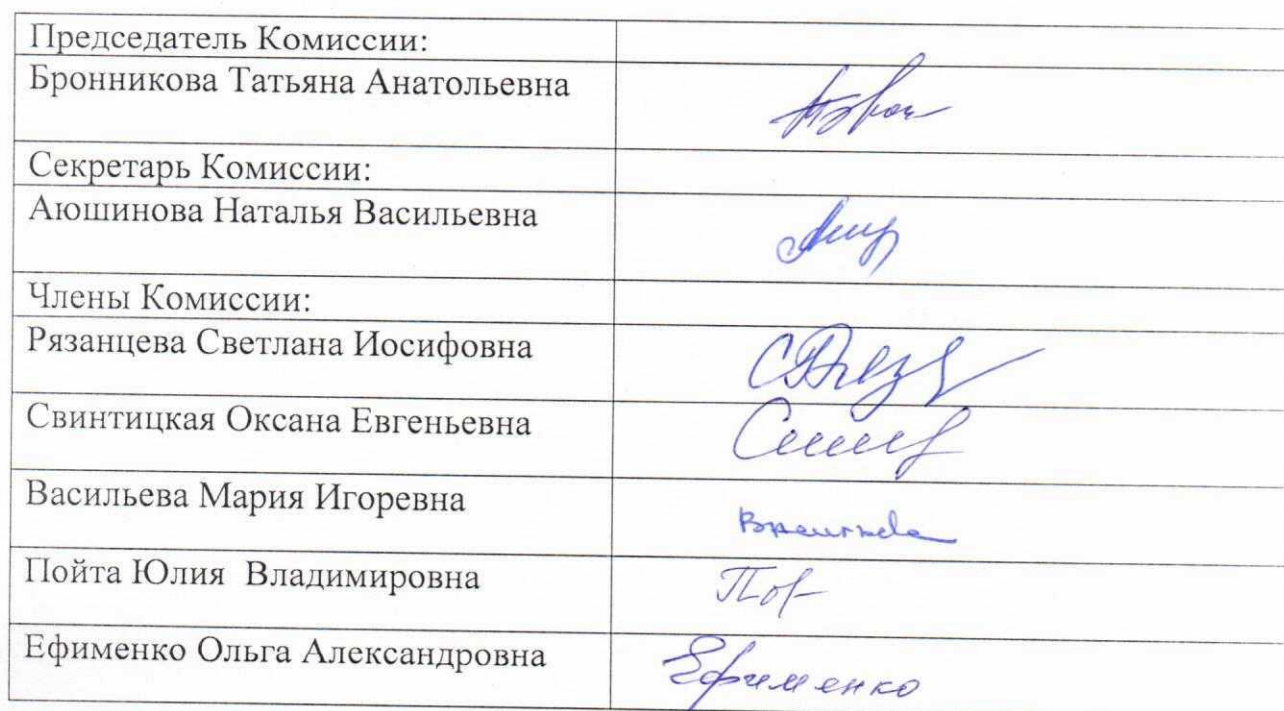 Председатель Комиссии:
Бронникова Татьяна Анатольевна
Секретарь Комиссии:
Аюшинова Наталья Васильевна
Члены Комиссии:
Рязанцева Светлана Иосифовна
Свинтицкая Оксана Евгеньевна
Васильева Мария Игоревна
Пойта Юлия Владимировна
Ефименко Ольга Александровна
Ефименко